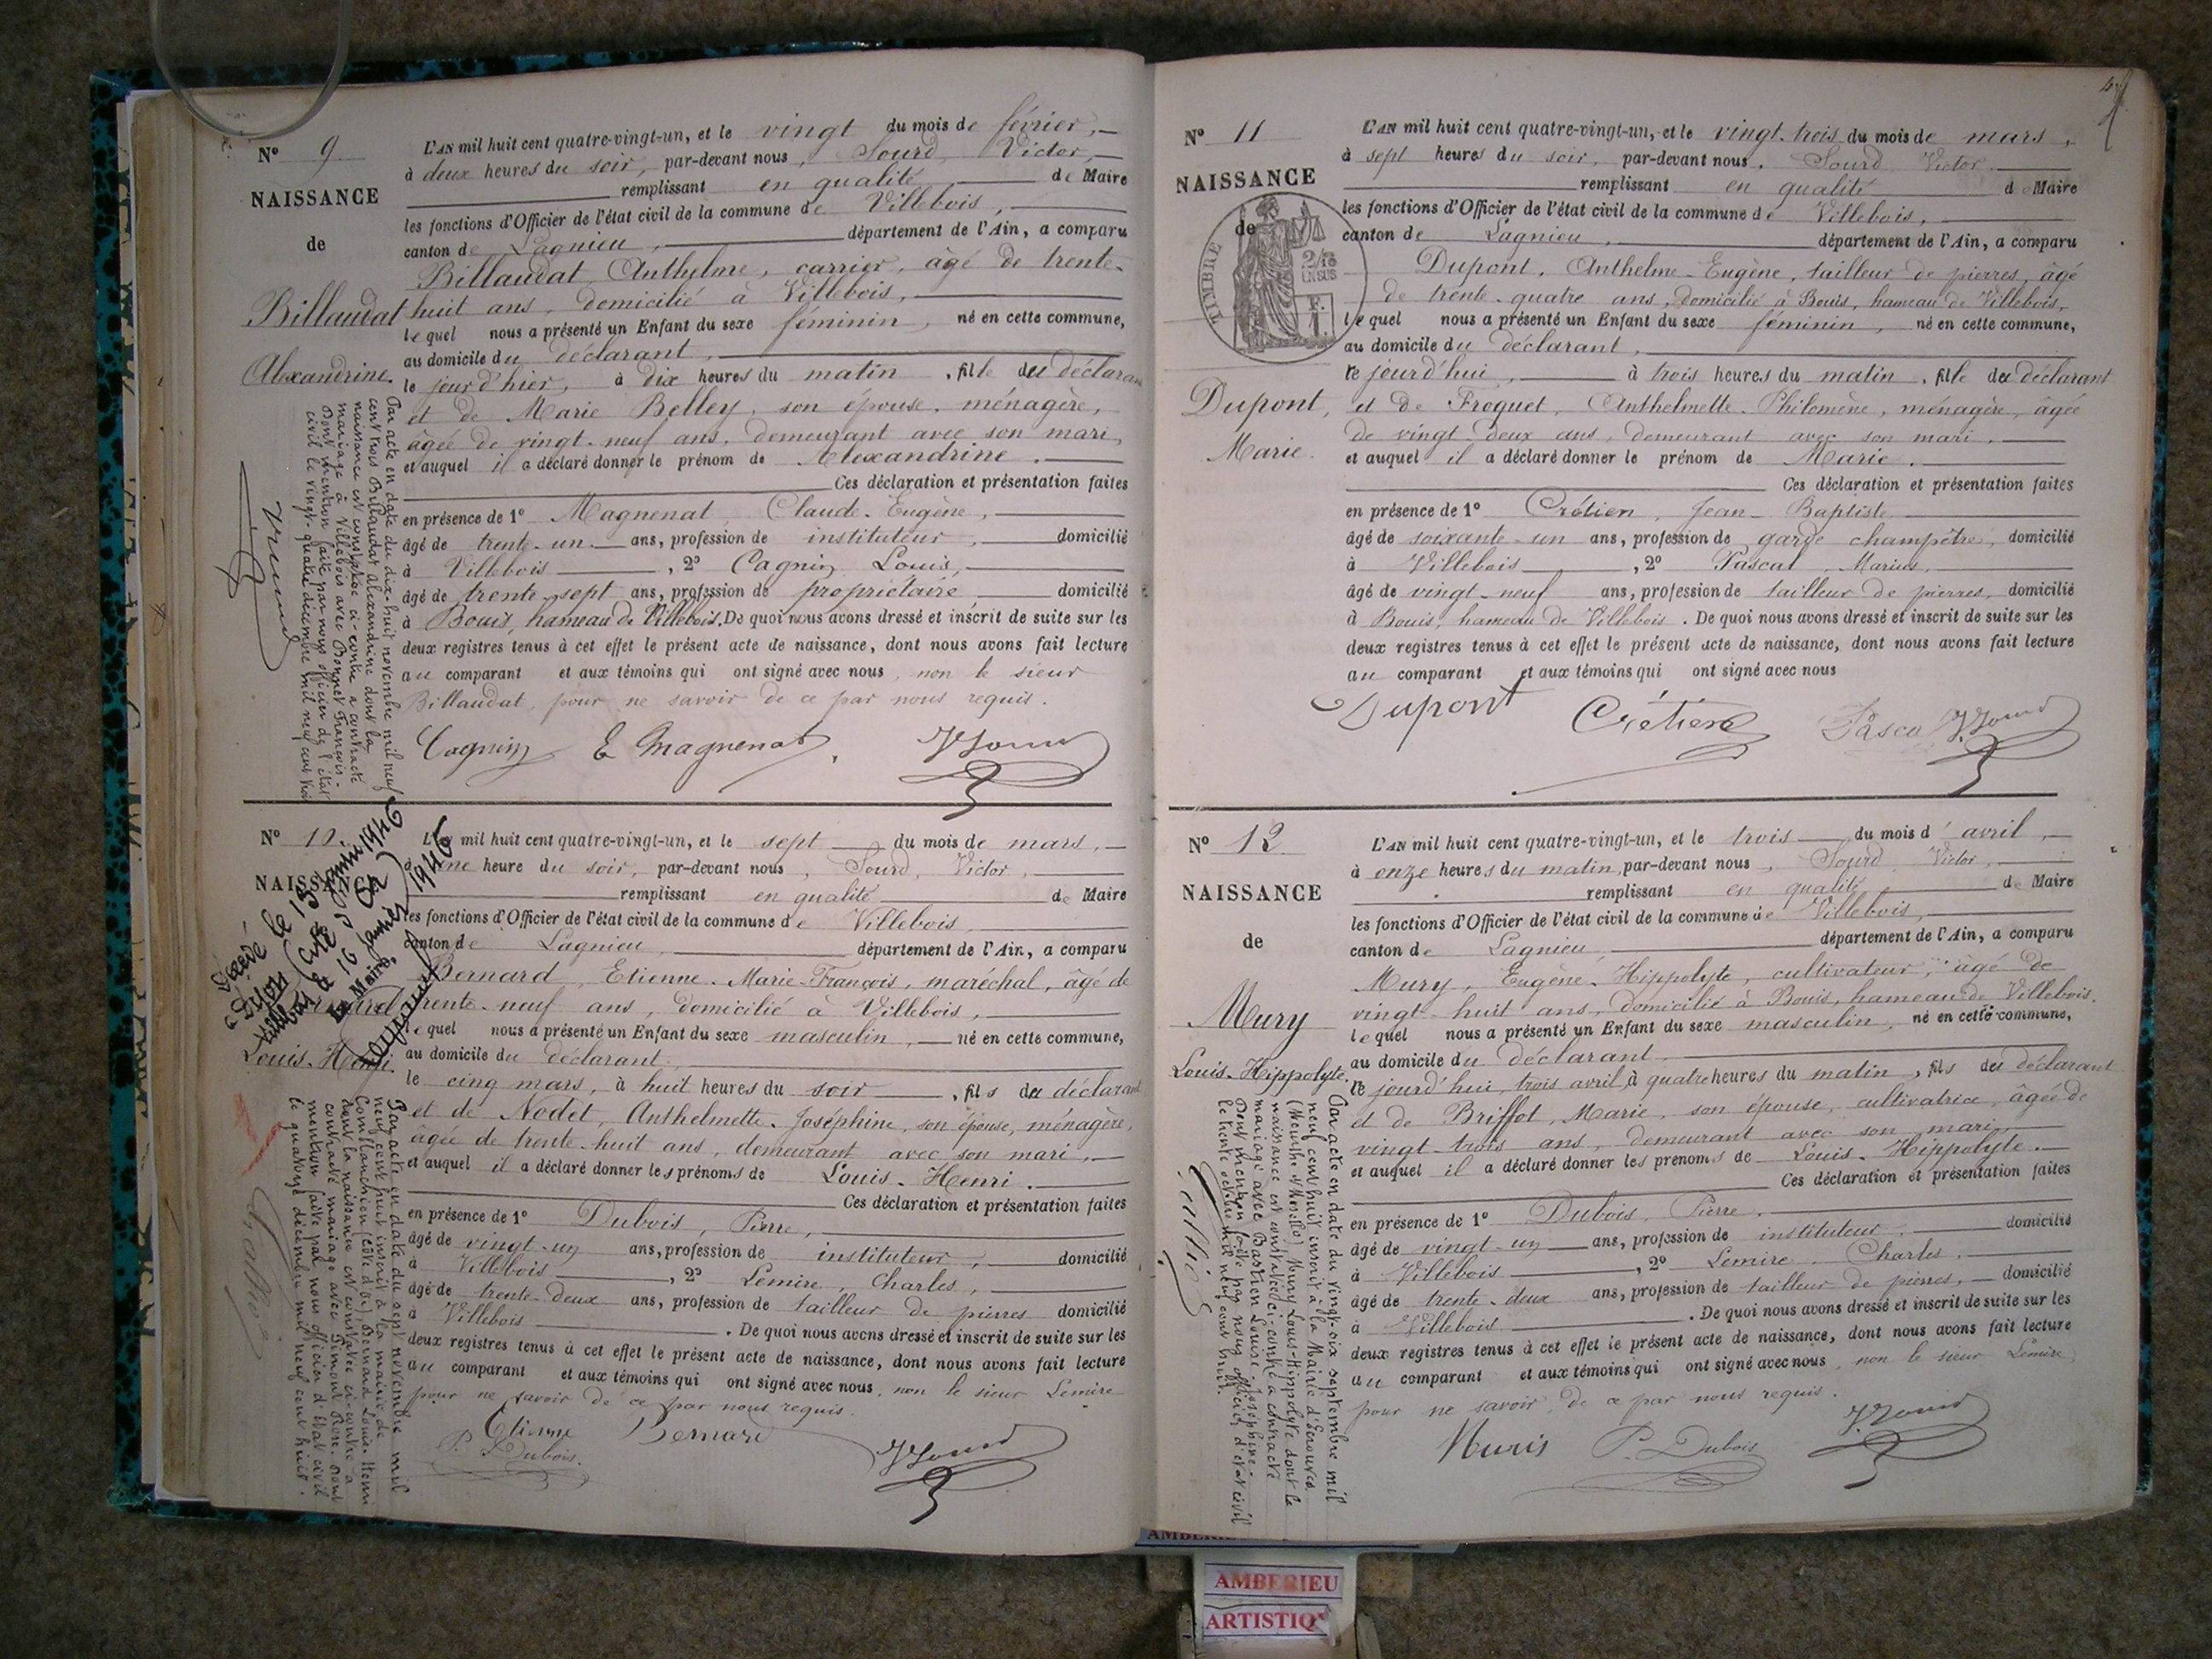 N° 9
NAISSANCE
de
Billaudat
Alexandrine.
L'AN mil huit cent quatre-vingt-un, et le vingt du mois de février,
à deux heures du soir, par-devant nous, Sourd, Victor,
remplissant en qualité de Maire
les fonctions d'Officier de l'état civil de la commune de Villebois,
canton de Lagnieu, département de l'Ain, a comparu
Billaudat, Anthelme, carrier, âgé de trente-
huit ans, domicilié à Villebois,
lequel nous a présenté un Enfant du sexe féminin, né en cette commune,
au domicile du déclarant,
le jour d'hier, à dix heures du matin, fille du déclarant
et de Marie Belley, son épouse, ménagère,
âgée de vingt-neuf ans, demeurant avec son mari,
et auquel il a déclaré donner le prénom de Alexandrine.
Ces déclaration et présentation faites
en présence de 1° Magnenat, Claude-Eugène,
âgé de trente-un ans, profession de instituteur, domicilié
à Villebois, 2° Cagnin, Louis,
âgé de trente-sept ans, profession de propriétaire domicilié
à Bouis, hameau de Villebois. De quoi nous avons dressé et inscrit de suite sur les
deux registres tenus à cet effet le présent acte de naissance, dont nous avons fait lecture
au comparant et aux témoins qui ont signé avec nous, non le sieur
Billaudat, pour ne savoir de ce par nous requis.
Cagnin E Magnenat VSourd
Par acte en date du dix-huit novembre mil neuf
cent trois Billaudat Alexandrine dont la
naissance est constatée ci-contre a contracté
mariage à Villebois avec Bonnet François.-
Dont mention faite par nous officier de l'état
civil le vingt-quatre décembre mil neuf cent trois
N° 10.
NAISSANCE
Louis-Henri.
Décédé le 13 janvier 1946
à Dijon (Côte d'Or)
Villebois le 16 janvier 1946
Le Maire,
L'AN mil huit cent quatre-vingt-un, et le sept du mois de mars,
à une heure du soir, par-devant nous, Sourd, Victor,
remplissant en qualité de Maire
les fonctions d'Officier de l'état civil de la commune de Villebois
canton de Lagnieu, département de l'Ain, a comparu
Bernard, Etienne-Marie-François, maréchal, âgé de
trente-neuf ans, domicilié à Villebois,
lequel nous a présenté un Enfant du sexe masculin, né en cette commune,
au domicile du déclarant,
le cinq mars, à huit heures du soir, fils du déclarant
et de Nodet, Anthelmette-Joséphine, son épouse, ménagère,
âgée de trente-huit ans, demeurant avec son mari,
et auquel il a déclaré donner les prénoms de Louis-Henri.
Ces déclaration et présentation faites
en présence de 1° Dubois, Pierre,
âgé de vingt-un ans, profession de instituteur, domicilié
à Villebois, 2° Lemire, Charles,
âgé de trente-deux ans, profession de tailleur de pierres domicilié
à Villebois. De quoi nous avons dressé et inscrit de suite sur les
deux registres tenus à cet effet le présent acte de naissance, dont nous avons fait lecture
au comparant et aux témoins qui ont signé avec nous, non le sieur Lemire
pour ne savoir de ce par nous requis.
Etienne Bernard
P. Dubois. VSourd
Par acte en date du sept novembre mil
neuf cent huit inscrit à la mairie de
Comblanchien (Côte d'Or), Bernard Louis-Henri
dont la naissance est constatée ci-contre a
contracté mariage avec Simont Rose. Dont
mention faite par nous officier d'état civil
le quatorze décembre mil neuf cent huit.
N° 11
NAISSANCE
de
TIMBRE
2/10 EN SUS
Dupont,
Marie.
L'AN mil huit cent quatre-vingt-un, et le vingt-trois du mois de mars,
à sept heures du soir, par-devant nous, Sourd Victor
remplissant en qualité de Maire
les fonctions d'Officier de l'état civil de la commune de Villebois,
canton de Lagnieu, département de l'Ain, a comparu
Dupont, Anthelme-Eugène, tailleur de pierres, âgé
de trente-quatre ans, domicilié à Bouis, hameau de Villebois,
lequel nous a présenté un Enfant du sexe féminin, né en cette commune,
au domicile du déclarant,
le jourd'hui, à trois heures du matin, fille du déclarant
et de Froquet, Anthelmette-Philomène, ménagère, âgée
de vingt-deux ans, demeurant avec son mari.
et auquel il a déclaré donner le prénom de Marie.
Ces déclaration et présentation faites
en présence de 1° Crétien, Jean-Baptiste
âgé de soixante-un ans, profession de garde champêtre, domicilié
à Villebois, 2° Pascal, Marius,
âgé de vingt-neuf ans, profession de tailleur de pierres, domicilié
à Bouis, hameau de Villebois. De quoi nous avons dressé et inscrit de suite sur les
deux registres tenus à cet effet le présent acte de naissance, dont nous avons fait lecture
au comparant et aux témoins qui ont signé avec nous
Dupont Crétien Pascal VSourd
N° 12
NAISSANCE
de
Mury
Louis-Hippolyte.
L'AN mil huit cent quatre-vingt-un, et le trois du mois d'avril,
à onze heures du matin, par-devant nous, Sourd Victor,
remplissant en qualité de Maire
les fonctions d'Officier de l'état civil de la commune de Villebois,
canton de Lagnieu, département de l'Ain, a comparu
Mury, Eugène-Hippolyte, cultivateur, âgé de
vingt-huit ans, domicilié à Bouis, hameau de Villebois.
lequel nous a présenté un Enfant du sexe masculin, né en cette commune,
au domicile du déclarant
le jourd'hui, trois avril, à quatre heures du matin, fils du déclarant
et de Briffot, Marie, son épouse, cultivatrice, âgée de
vingt-trois ans, demeurant avec son mari,
et auquel il a déclaré donner les prénoms de Louis-Hippolyte.
Ces déclaration et présentation faites
en présence de 1° Dubois, Pierre.
âgé de vingt-un ans, profession de instituteur, domicilié
à Villebois, 2° Lemire, Charles,
âgé de trente-deux ans, profession de tailleur de pierres, domicilié
à Villebois. De quoi nous avons dressé et inscrit de suite sur les
deux registres tenus à cet effet le présent acte de naissance, dont nous avons fait lecture
au comparant et aux témoins qui ont signé avec nous, non le sieur Lemire
pour ne savoir, de ce par nous requis.
Muris P. Dubois VSourd
Par acte en date du vingt-six septembre mil
neuf cent huit inscrit à la Mairie d'Ecrouves
(Meurthe & Moselle) Mury Louis-Hippolyte dont la
naissance est constatée ci-contre a contracté
mariage avec Bastien Louise Joséphine.
Dont mention faite par nous officier d'état civil
le trente octobre mil neuf cent huit.
AMBERIEU
ARTISTIQ